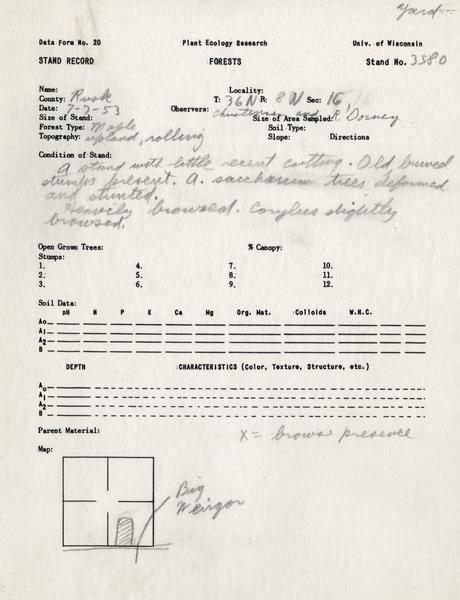 Yard
Data Form No. 20 Plant Ecology Research Univ. of Wisconsin
STAND RECORD FORESTS Stand No. 3580
Name: Locality:
County: Rusk T: 36N R: 8W Sec: 16
Date: 7-7-53 Observers: Christensen and R Dorney
Size of Stand: Size of Area Sampled:
Forest Type: Maple Soil Type:
Topography: upland, rolling Slope: Directions
Condition of Stand:
A stand with little recent cutting. Old burned
stumps present. A. saccharum trees deformed
and stunted.
Heavily browsed. Corylus slightly
browsed.
Open Grown Trees: % Canopy:
Stumps:
1. 4. 7. 10.
2. 5. 8. 11.
3. 6. 9. 12.
Soil Data:
pH N P K Ca Mg Org. Mat. Colloids W.H.C.
A0
A1
A2
B
DEPTH CHARACTERISTICS (Color, Texture, Structure, etc.)
A0
A1
A2
B
Parent Material:
X = browse presence
Map:
Big
Weirgor